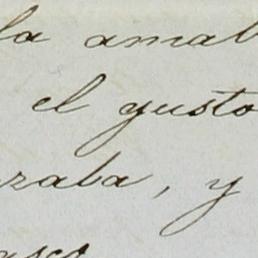 la amab
el gusto
raba, y